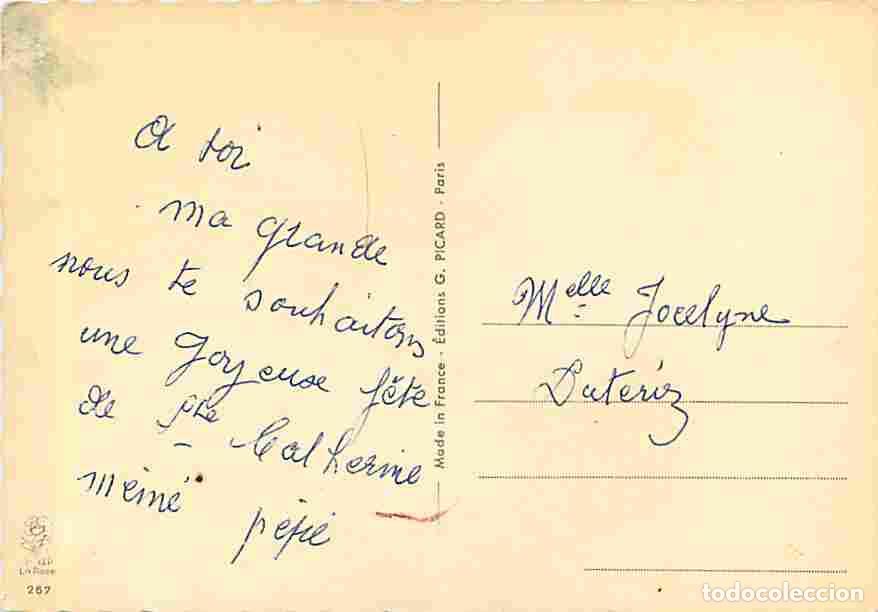 A toi
ma grande
nous te souhaitons
une Joyeuse fête
de Ste Catherine
mémé pépé
Made in France - Éditions G. PICARD - Paris
Melle Jocelyne
La Rose
257
todocoleccion